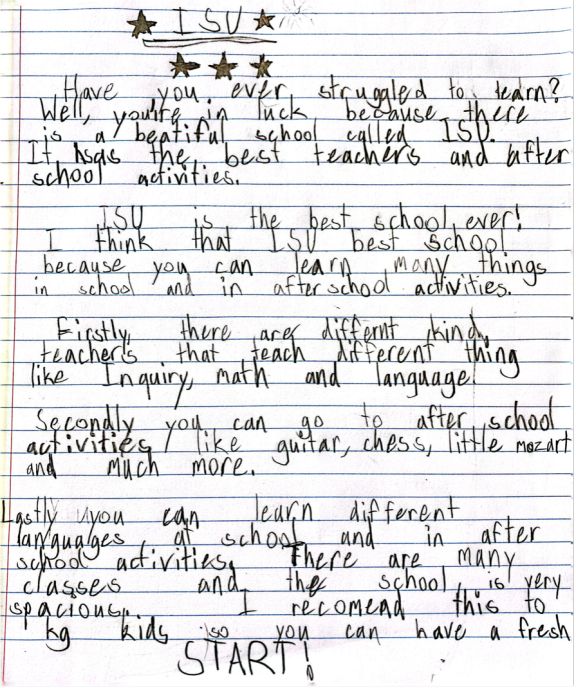 ISU
Have you ever struggled to learn?
Well, you're in luck because there
is a beatiful school called ISU.
It hsas the best teachers and after
school activities.
ISU is the best school ever!
I think that ISU best school
because you can learn many things
in school and in after school activities.
Firstly, there are differnt kind,
teachers that teach different thing
like Inquiry, math and language!
Secondly you can go to after school
activities like guitar, chess, little mozart
and much more.
Lastly you can learn different
languages at school and in after
school activities. There are many
classes and the school is very
spacious. I recomend this to
kg kids so you can have a fresh
START!